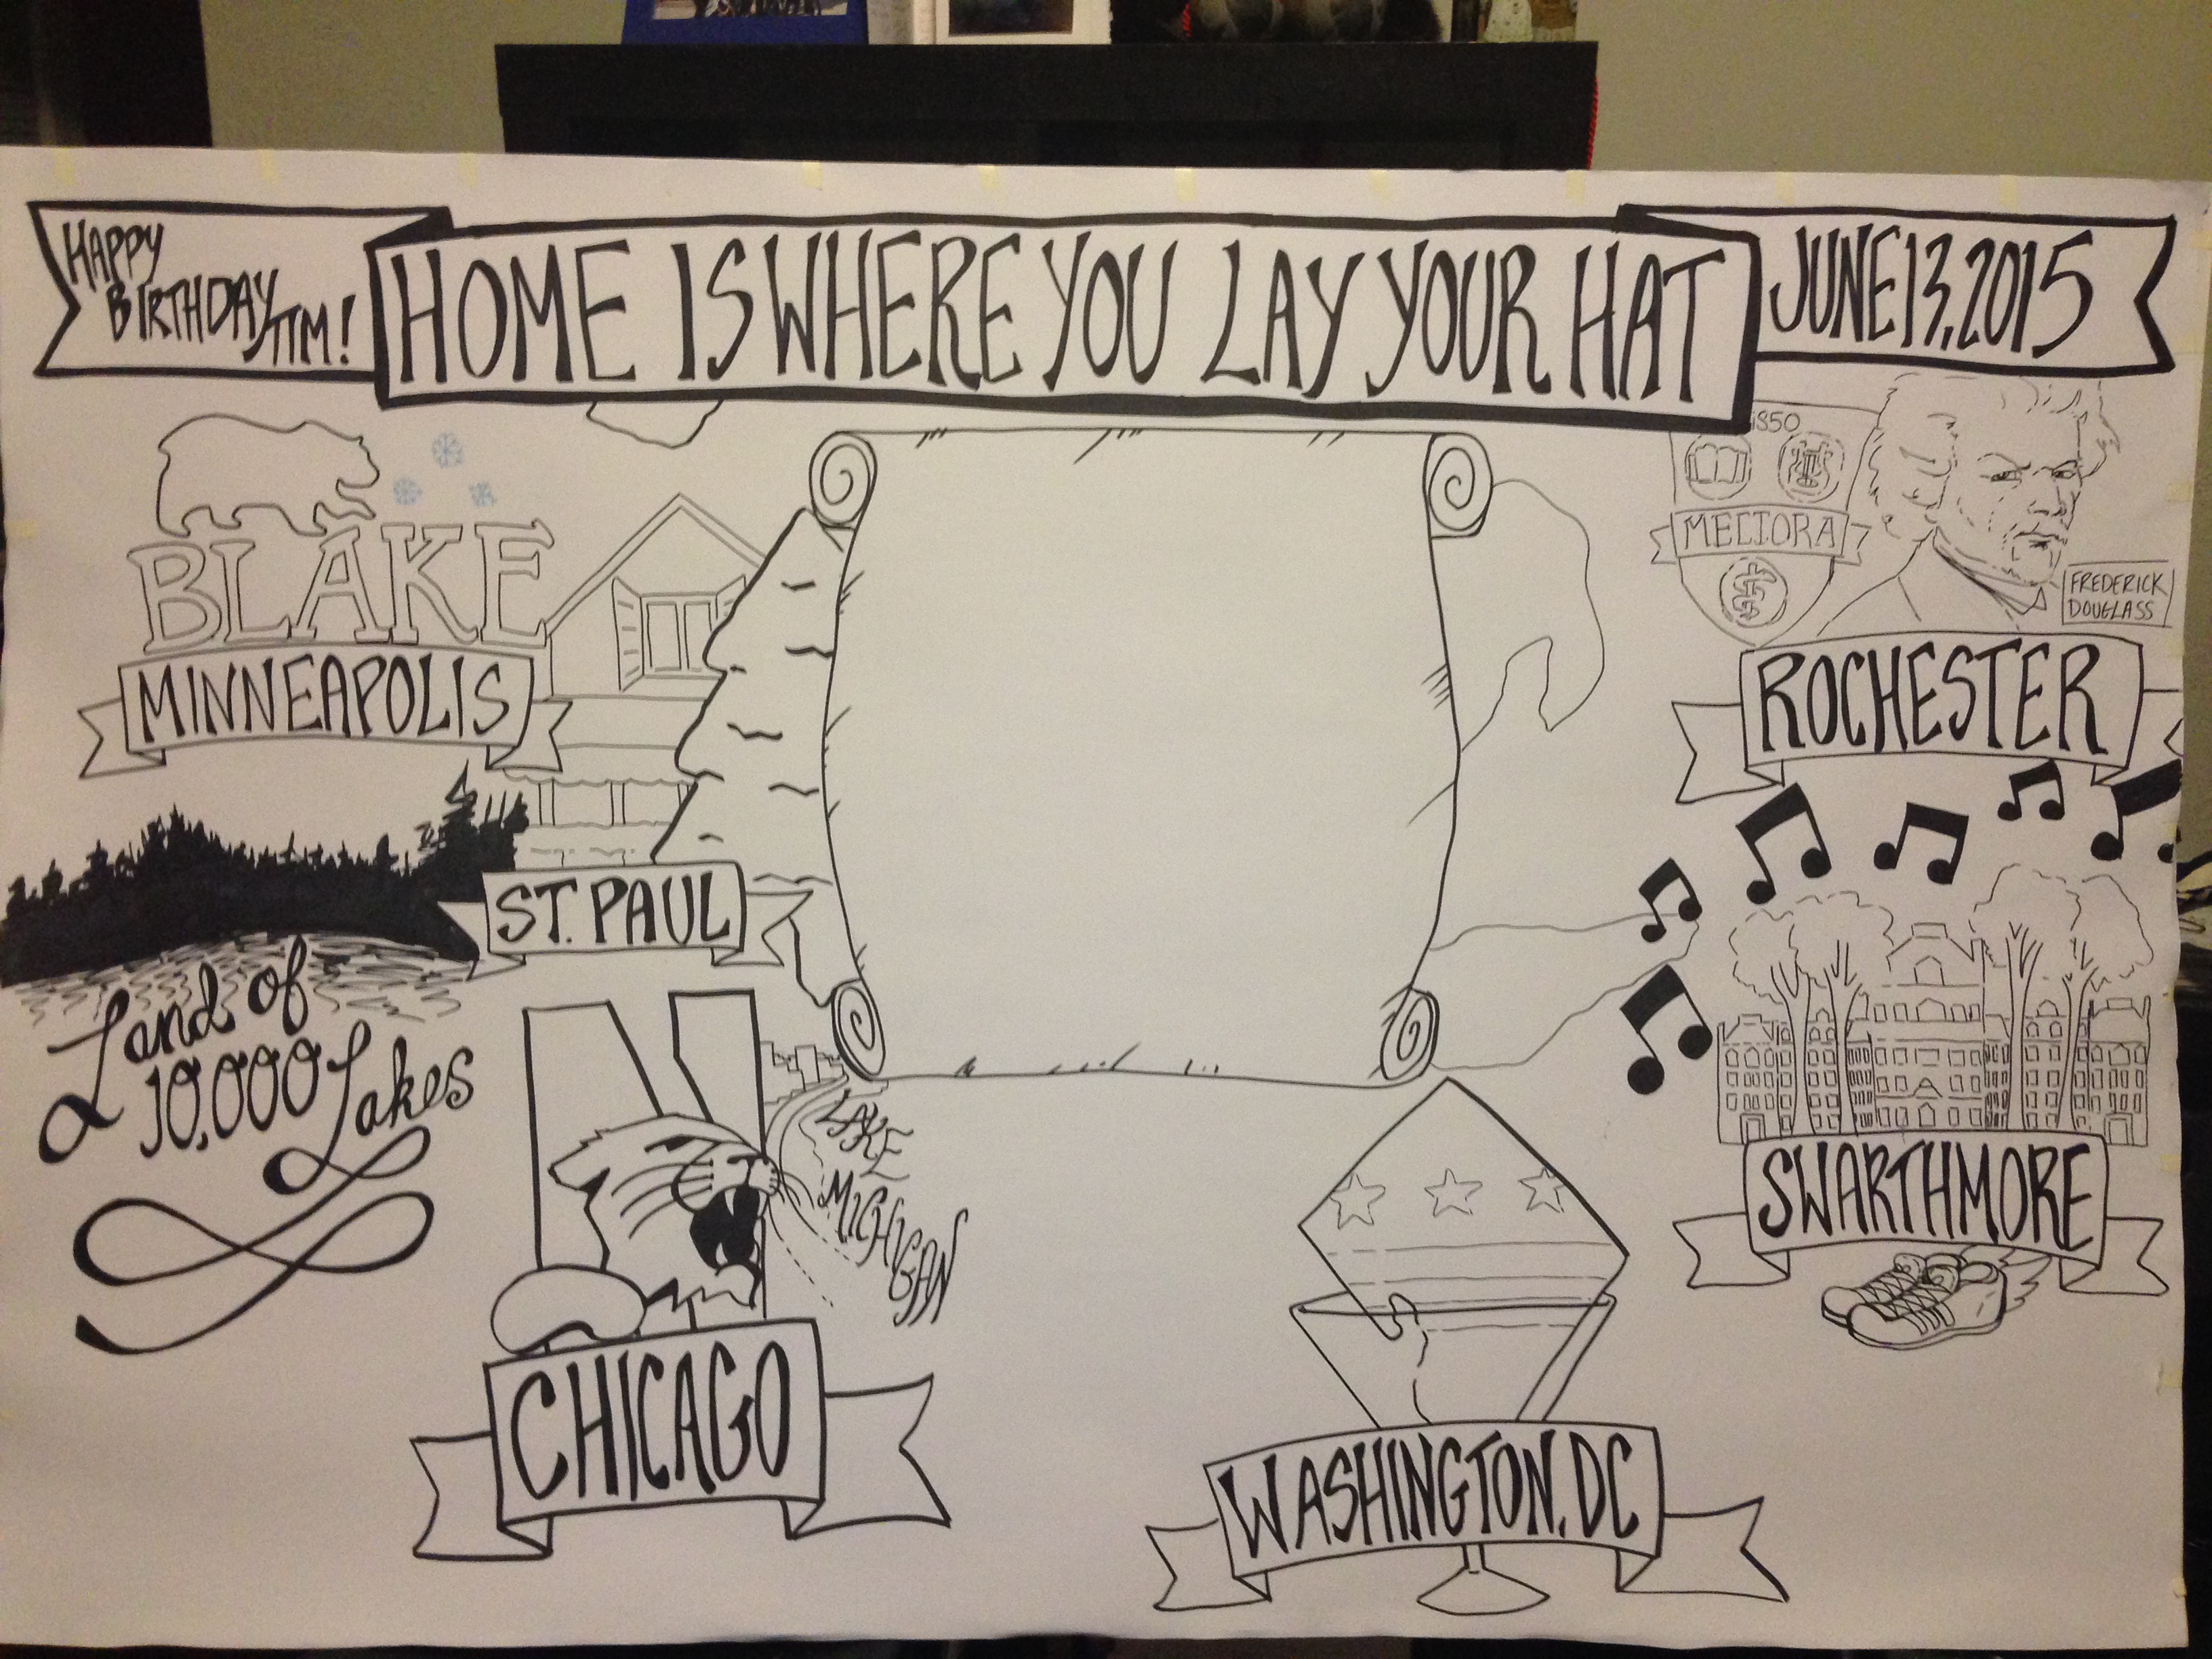 HAPPY
BIRTHDAY,
TIM!
HOME IS WHERE YOU LAY YOUR HAT
JUNE 13, 2015
1850
MELIORA
FREDERICK
DOUGLASS
ROCHESTER
BLAKE
MINNEAPOLIS
ST. PAUL
Land of
10,000 Lakes
LAKE
MICHIGAN
CHICAGO
SWARTHMORE
WASHINGTON, DC